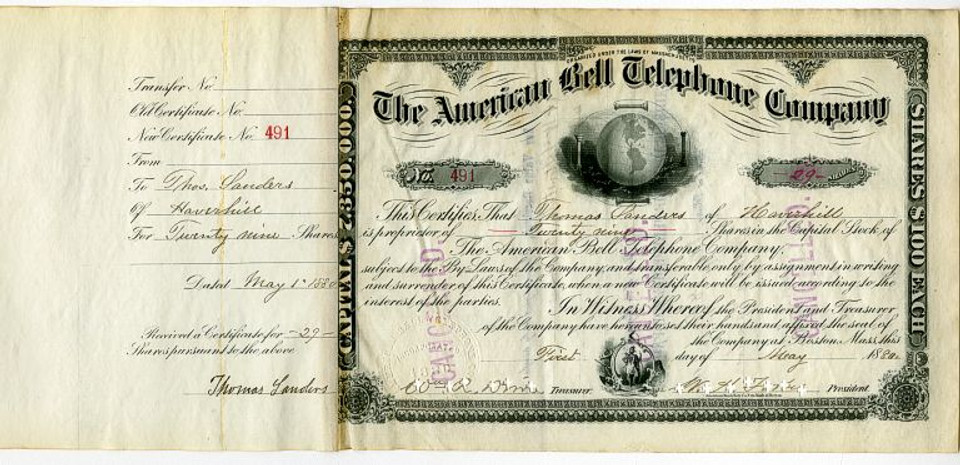 Transfer No.
Old Certificate No.
New Certificate No. 491
From
To Thos. Sanders
Of Haverhill
For Twenty nine Shares
Dated May 1st 1880
Received a Certificate for -29-
Shares pursuant to the above
Thomas Sanders
CAPITAL $7,350,000.
ORGANIZED UNDER THE LAWS OF MASSACHUSETTS
The American Bell Telephone Company
No. 491
-29- SHARES
This Certifies That Thomas Sanders of Haverhill
is proprietor of Twenty nine Shares in the Capital Stock of
The American Bell Telephone Company,
subject to the By Laws of the Company and transferable only by assignment in writing
and surrender of this Certificate, when a new Certificate will be issued according to the
interest of the parties.
In Witness Whereof the President and Treasurer
of the Company have hereunto set their hands and affixed the seal of
the Company at Boston, Mass. this
First day of May 1880
Treasurer
President
SHARES $100 EACH
CANCELLED.
CANCELLED.
CANCELLED.